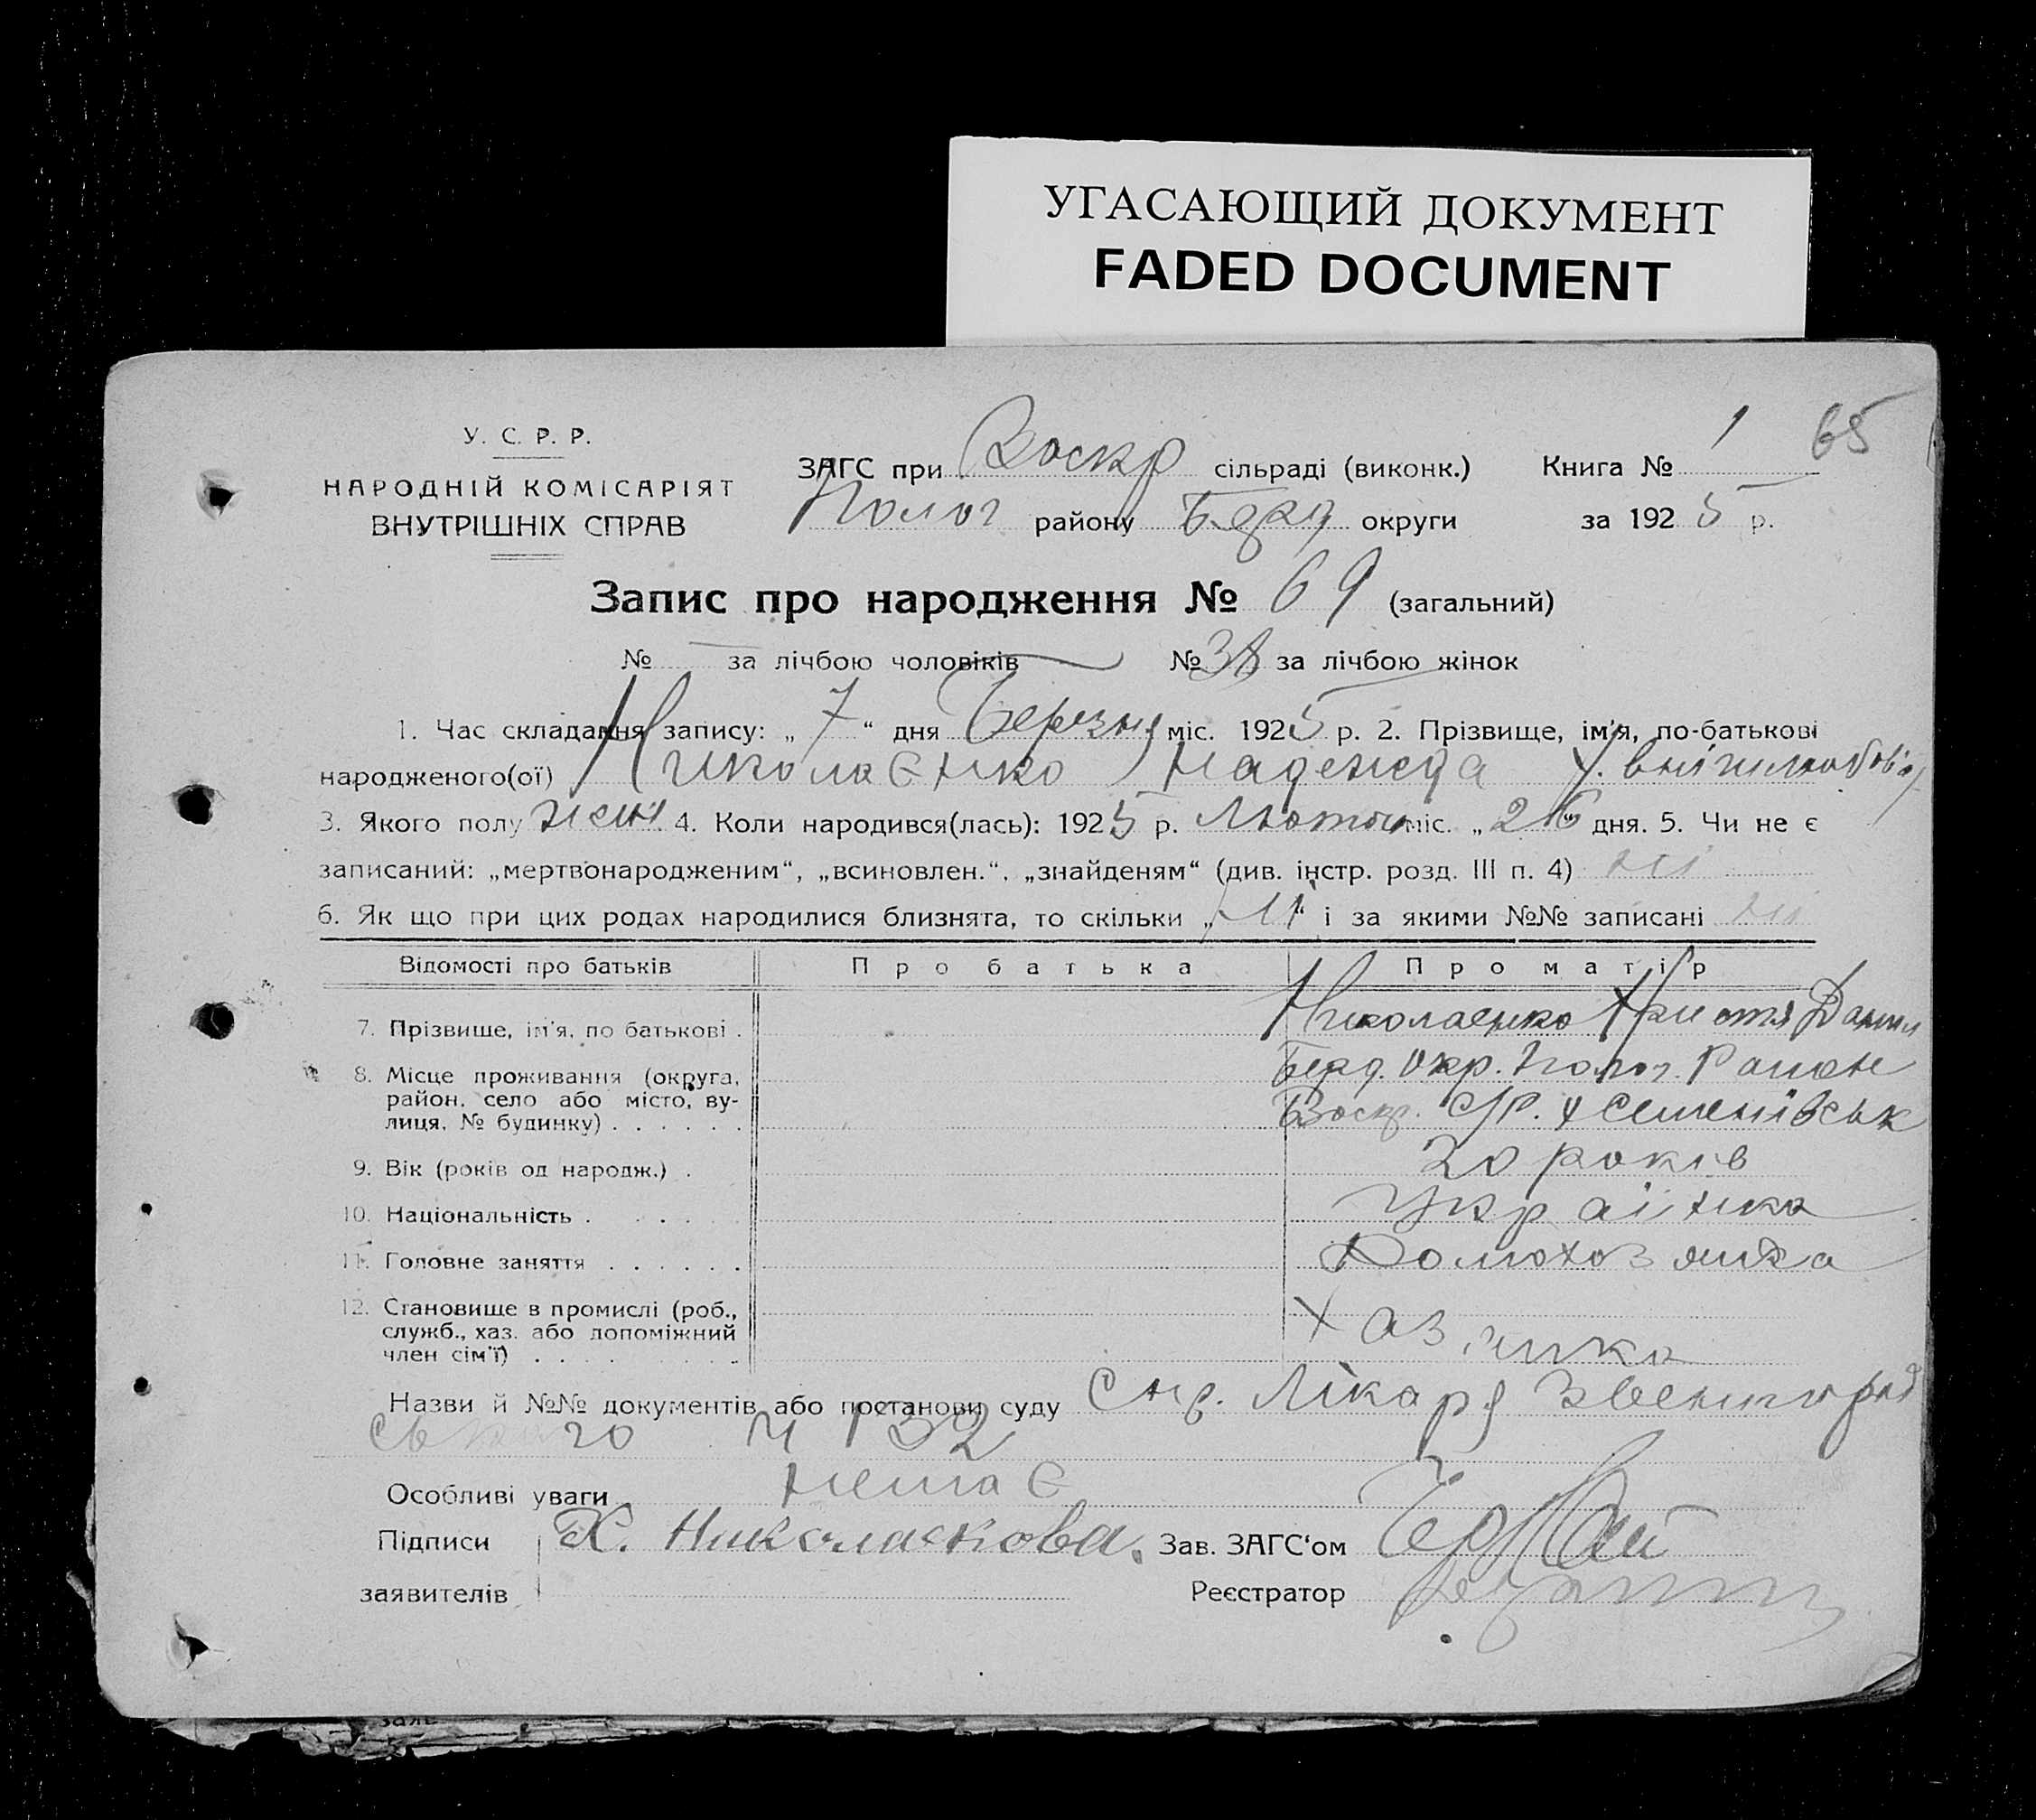 УГАСАЮЩИЙ ДОКУМЕНТ
FADED DOCUMENT
65
У. С. Р. Р.
НАРОДНІЙ КОМІСАРІЯТ
ВНУТРІШНІХ СПРАВ
ЗАГС при Воскр сільраді (виконк.) Книга № 1
Полог району Берд округи за 1925 р.
Запис про народження № 69 (загальний)
№ за лічбою чоловіків № 38 за лічбою жінок
1. Час складання запису: „7“ дня Березня міс. 1925 р. 2. Прізвище, ім'я, по-батькові
народженого(ої) Николаєнко Надежда
3. Якого полу жін. 4. Коли народився(лась): 1925 р. Лютого міс. „26“ дня. 5. Чи не є
записаний: „мертвонародженим“, „всиновлен.“, „знайденям“ (див. інстр. розд. III п. 4) ні
6. Як що при цих родах народилися близнята, то скільки „ні“ і за якими №№ записані ні
Відомості про батьків Про батька Про матір
7. Прізвище, ім'я, по батькові . Николаєнко Христя Данил
8. Місце проживання (округа, Берд. Окр. Полог. Район
район, село або місто, ву- Воскр. С/Р.
лиця, № будинку) . . . . . .
9. Вік (років од народж.) . 20 років
10. Національність . . . . . Українка
11. Головне заняття . . . . . . Домохозяйка
12. Становище в промислі (роб., Хазяйка
служб., хаз. або допоміжний
член сім'ї) . . . . . . . . .
Назви й №№ документів або постанови суду Спр. Лікаря Звенигород
ського Ч 132
Особливі уваги немає
Підписи Х. Николаєнкова. Зав. ЗАГС‘ом
заявителів Реєстратор